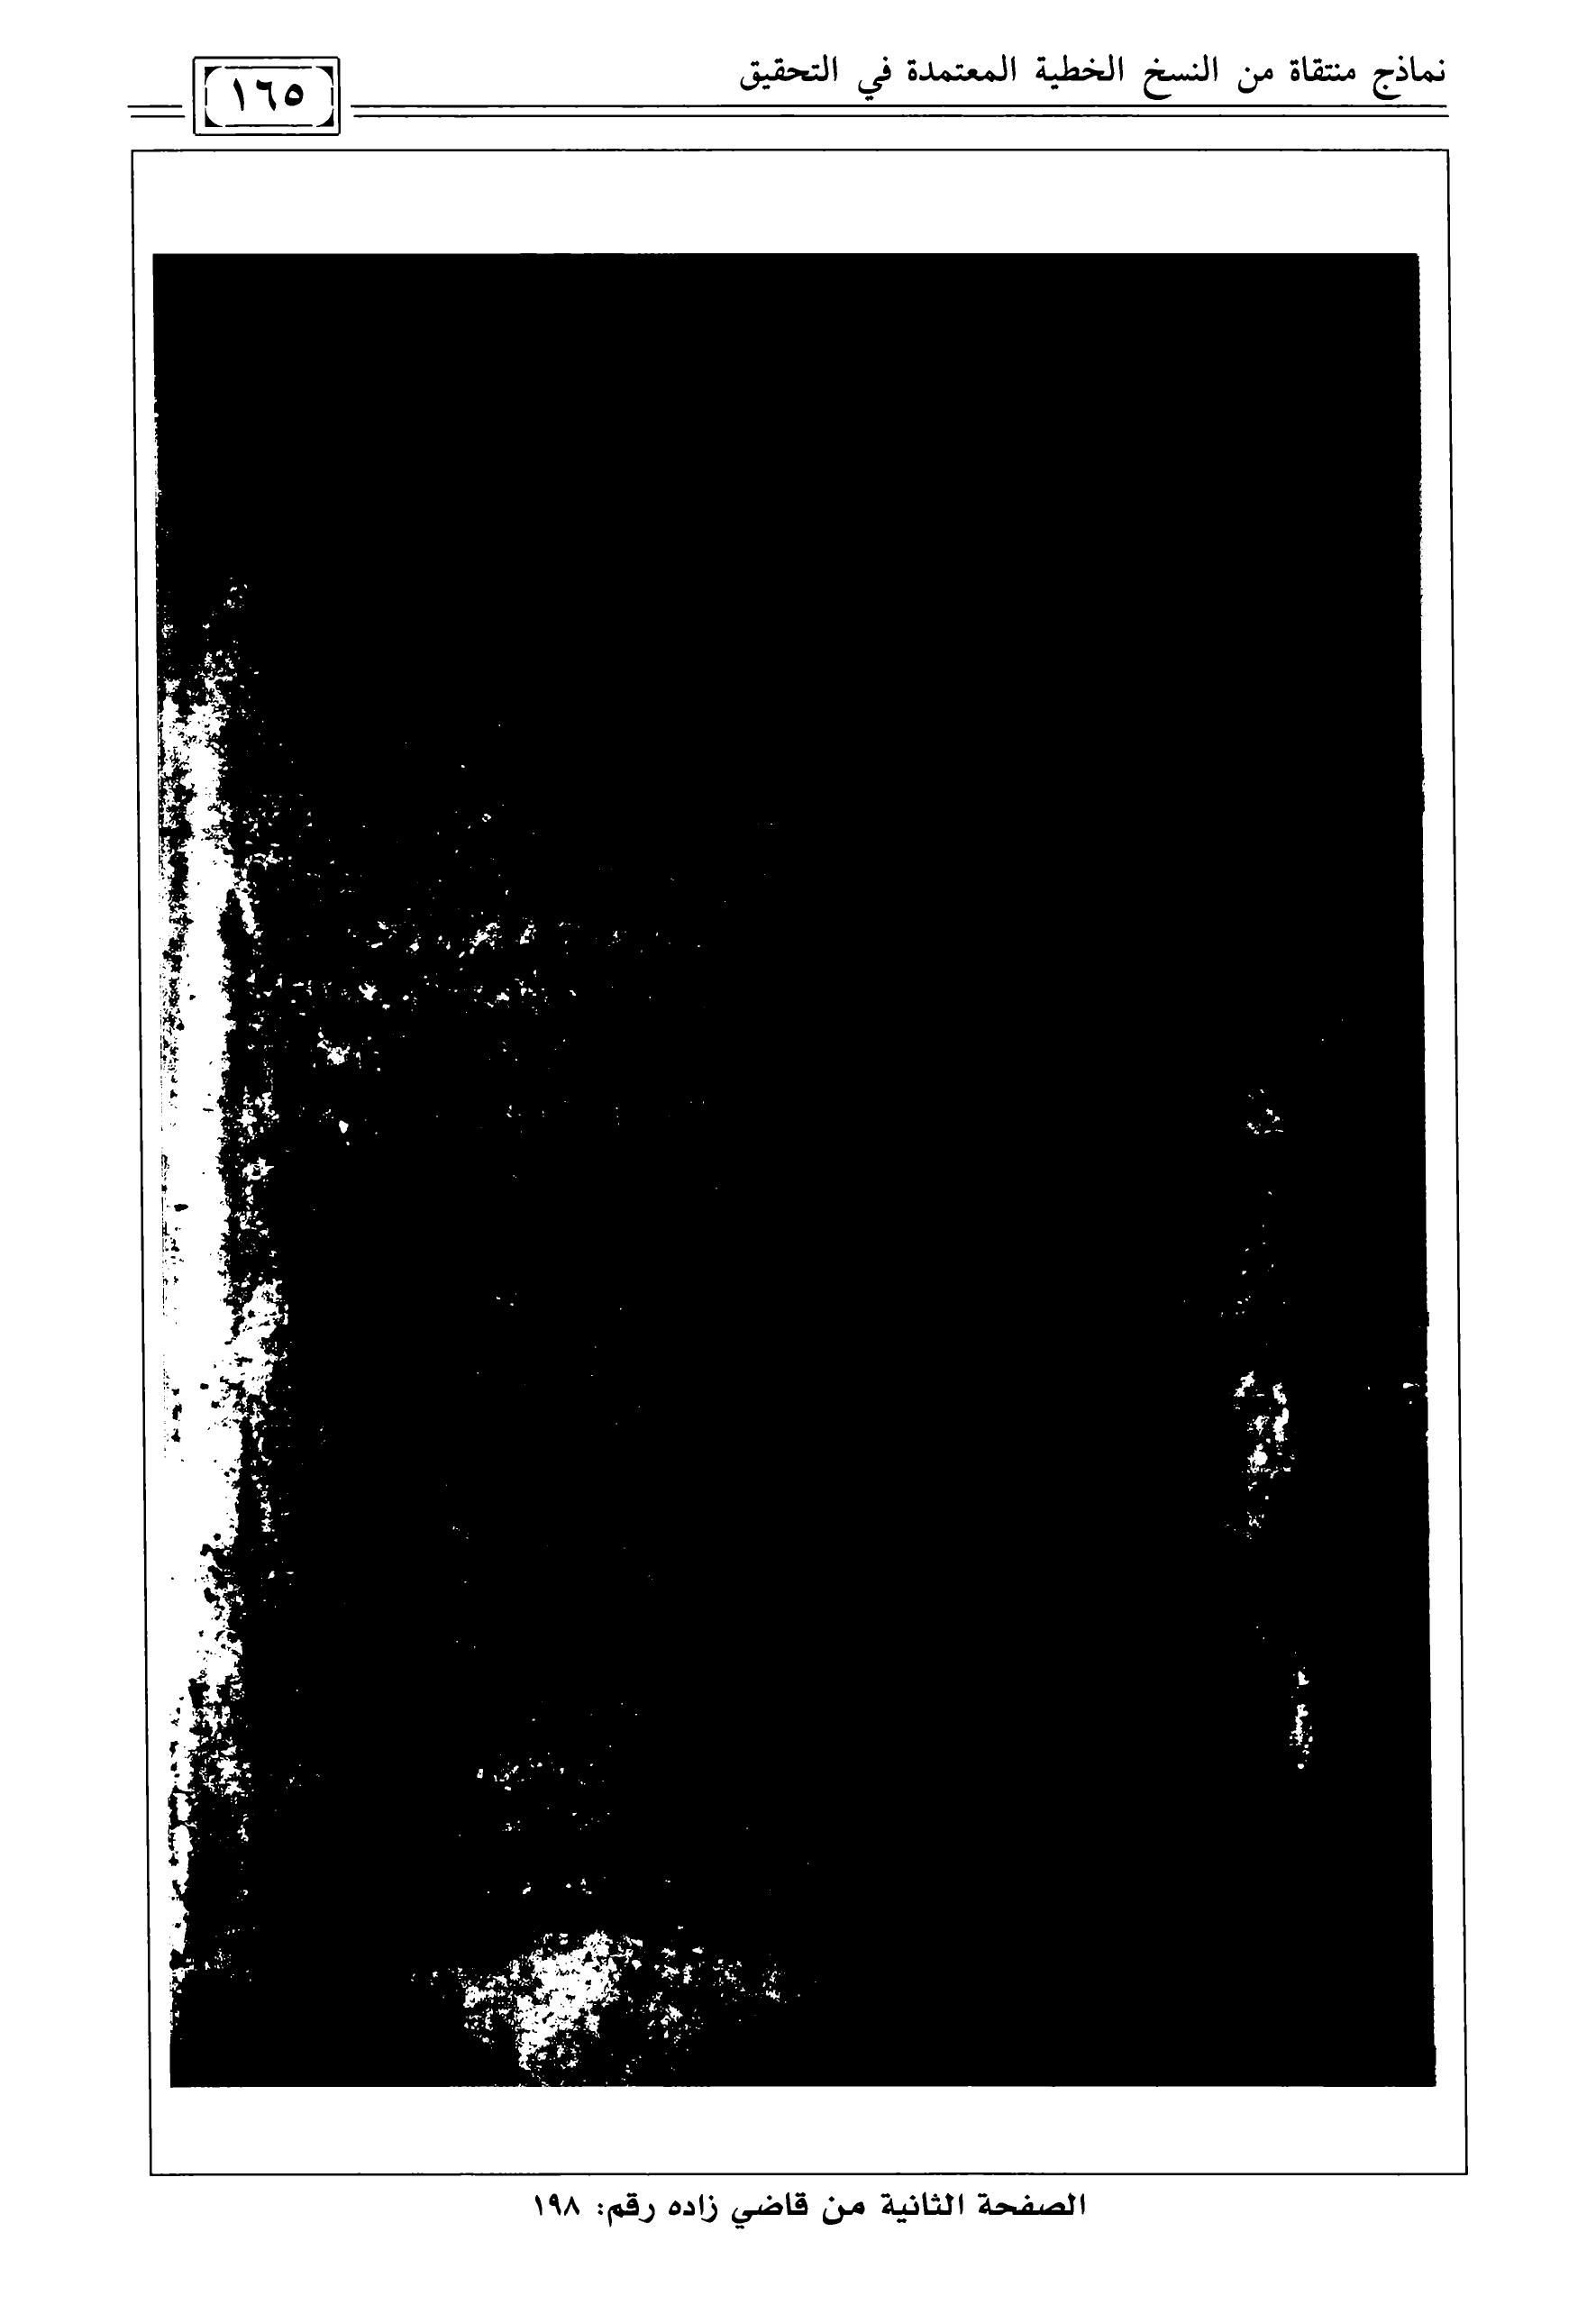 نماذج منتقاة من النسخ الخطية المعتمدة في التحقيق
١٦٥
الصفحة الثانية من قاضي زاده رقم: ١٩٨